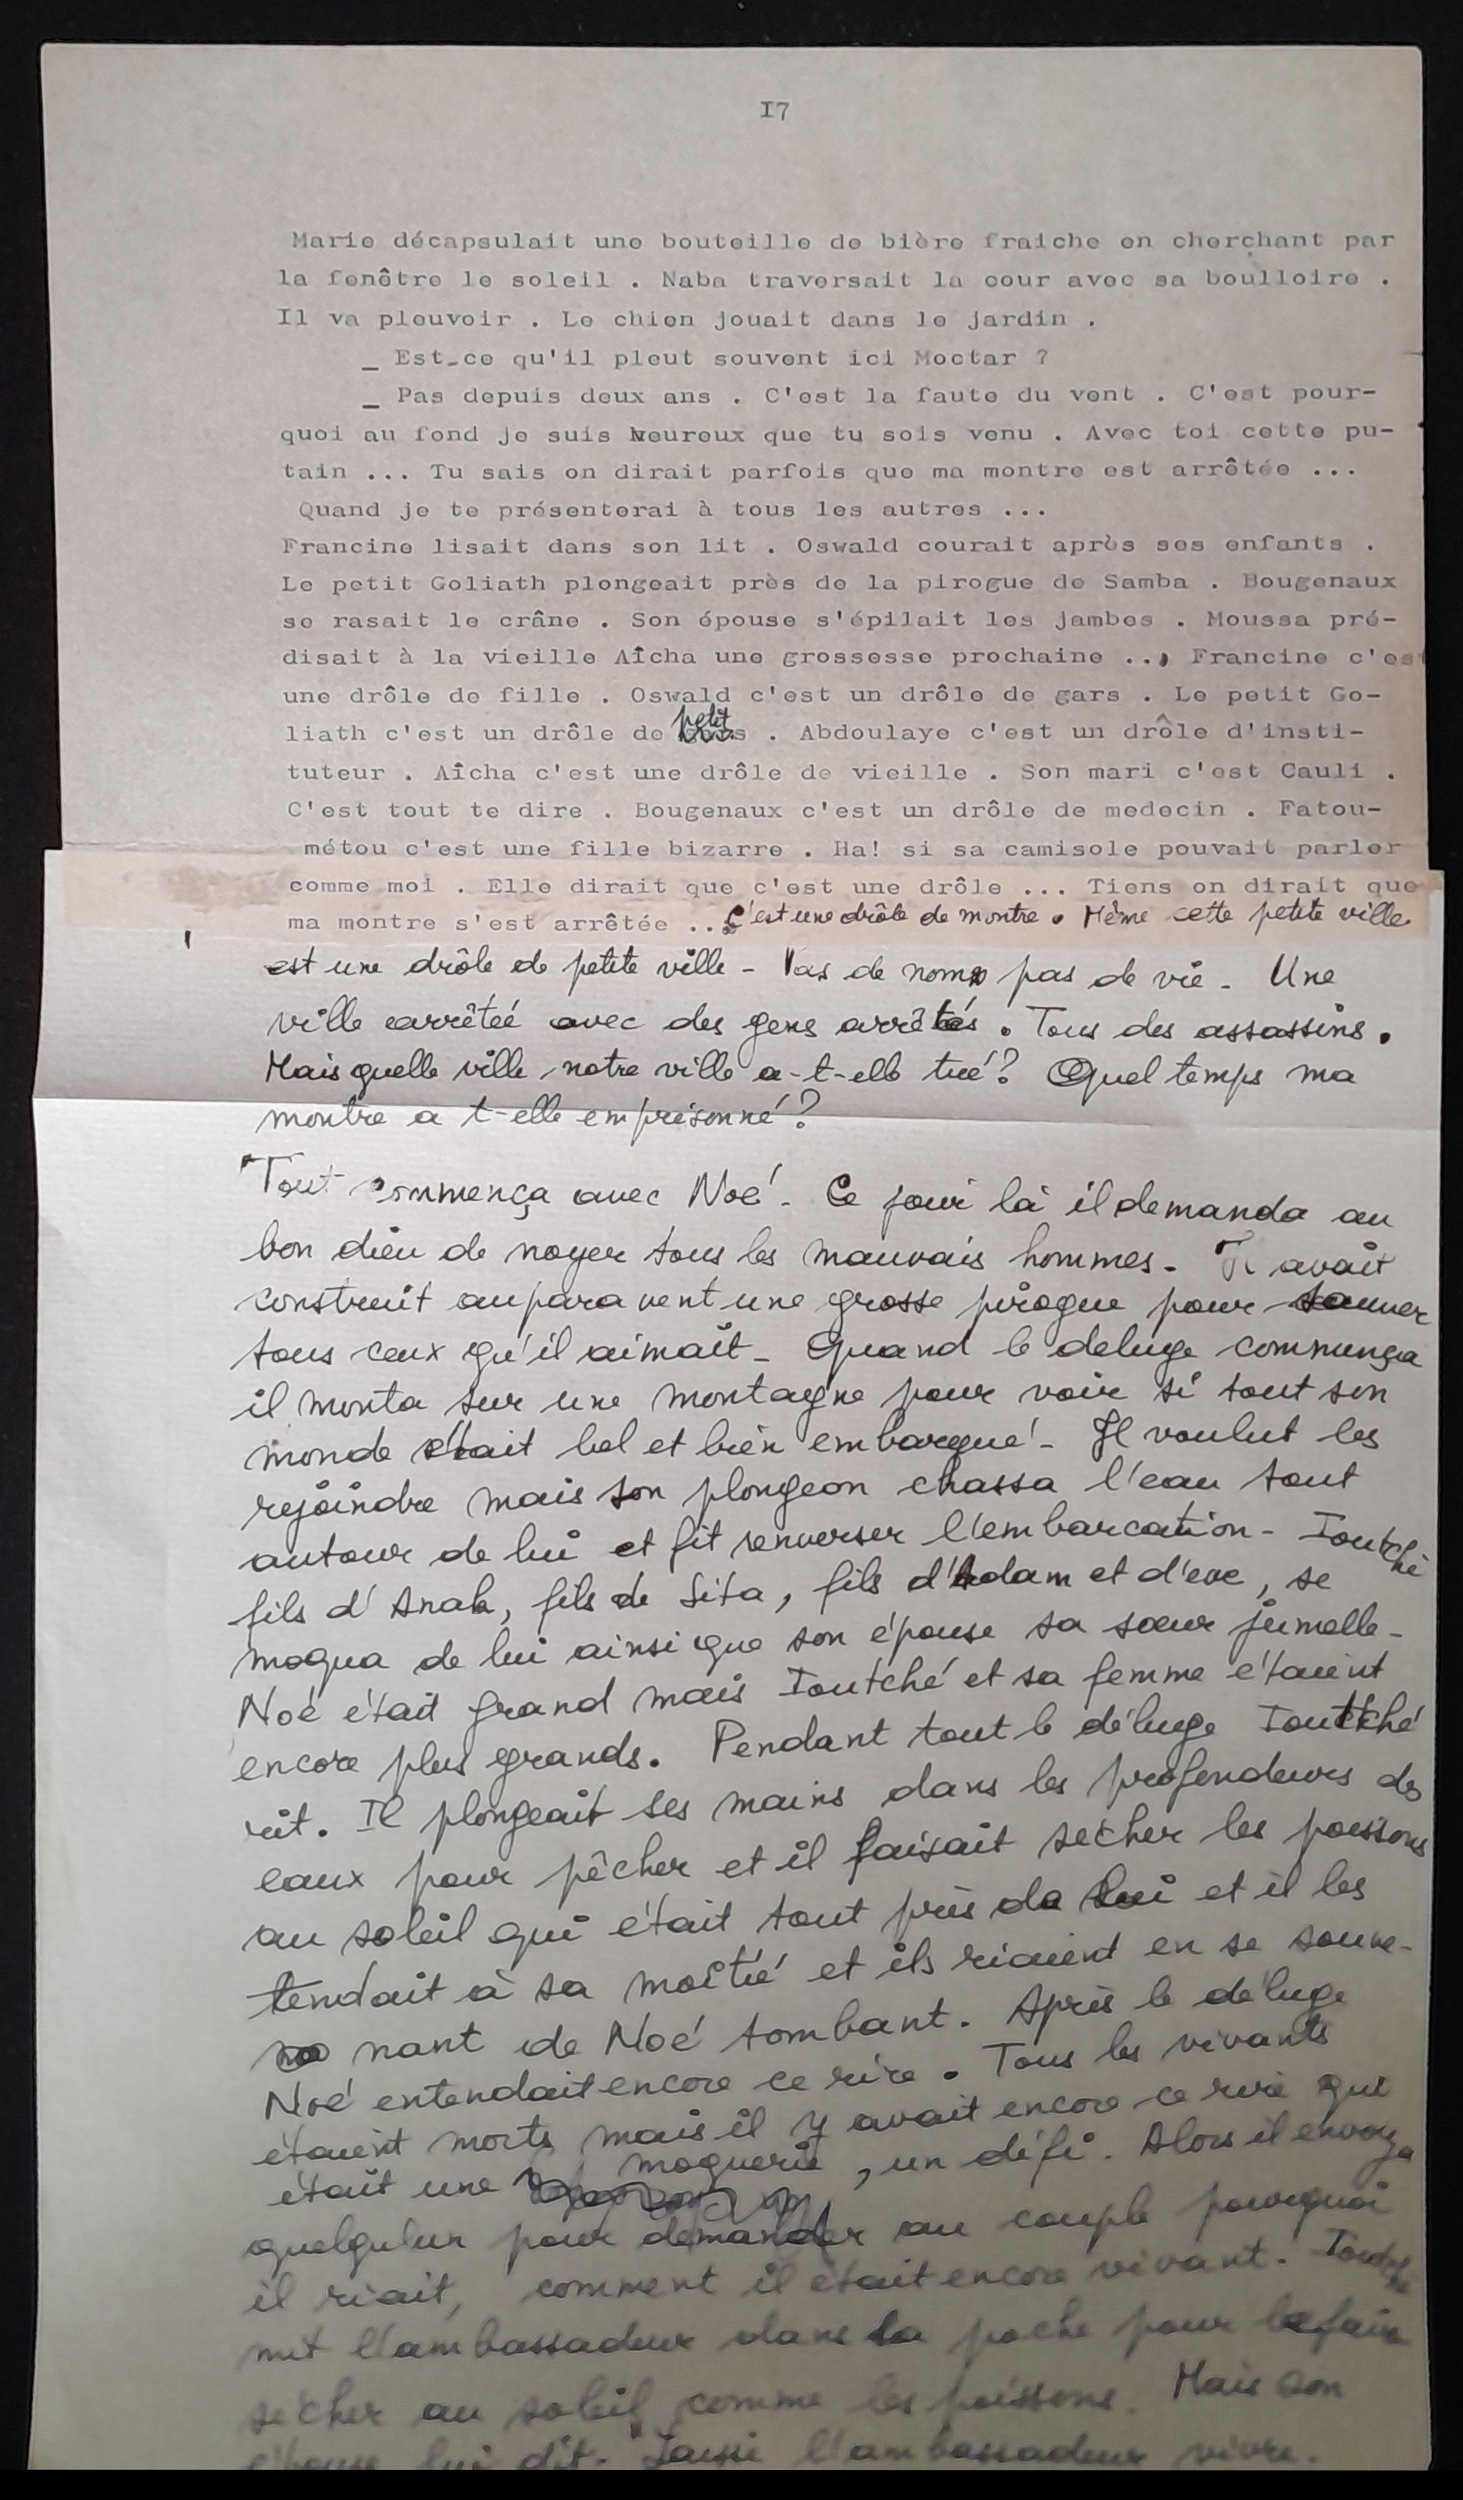 I7
Marie décapsulait une bouteille de bière fraiche en cherchant par
la fenêtre le soleil . Naba traversait la cour avec sa boulloire .
Il va pleuvoir . Le chien jouait dans le jardin .
_ Est-ce qu'il pleut souvent ici Moctar ?
_ Pas depuis deux ans . C'est la faute du vent . C'est pour-
quoi au fond je suis heureux que tu sois venu . Avec toi cette pu-
tain ... Tu sais on dirait parfois que ma montre est arrêtée ...
Quand je te présenterai à tous les autres ...
Francine lisait dans son lit . Oswald courait après ses enfants .
Le petit Goliath plongeait près de la pirogue de Samba . Bougenaux
se rasait le crâne . Son épouse s'épilait les jambes . Moussa pré-
disait à la vieille Aîcha une grossesse prochaine ... Francine c'est
une drôle de fille . Oswald c'est un drôle de gars . Le petit Go-
liath c'est un drôle de petit . Abdoulaye c'est un drôle d'insti-
tuteur . Aîcha c'est une drôle de vieille . Son mari c'est Cauli .
C'est tout te dire . Bougenaux c'est un drôle de medecin . Fatou-
métou c'est une fille bizarre . Ha! si sa camisole pouvait parler
comme moi . Elle dirait que c'est une drôle ... Tiens on dirait que
ma montre s'est arrêtée ... C'est une drôle de montre . Même cette petite ville
est une drôle de petite ville - Pas de nom pas de vie - Une
ville arrêtée avec des gens arrêtés . Tous des assassins .
Mais quelle ville notre ville a-t-elle tué ? Quel temps ma
montre a t-elle emprisonné ?
Tout commença avec Noé - Ce jour là il demanda au
bon dieu de noyer tous les mauvais hommes - Il avait
construit auparavent une grosse pirogue pour sauver
tous ceux qu'il aimait - Quand le deluge commença
il monta sur une montagne pour voir si tout son
monde était bel et bien embarqué - Il voulut les
rejoindre mais son plongeon chassa l'eau tout
autour de lui et fit renverser l'embarcation - Toutché
fils d'Anak, fils de Sita, fils d'Adam et d'eve, se
moqua de lui ainsi que son épouse sa sœur jumelle -
Noé était grand mais Toutché et sa femme étaient
encore plus grands . Pendant tout le déluge Toutché
rit . Il plongeait ses mains dans les profondeurs des
eaux pour pêcher et il faisait sécher les poissons
au soleil qui était tout près de lui et il les
tendait à sa moitié et ils riaient en se souve-
nant de Noé tombant . Après le déluge
Noé entendait encore ce rire . Tous les vivants
étaient morts mais il y avait encore ce rire qui
était une moquerie , un défi . Alors il envoya
quelqu'un pour demander au couple pourquoi
il riait, comment il était encore vivant . Toutché
mit l'ambassadeur dans la poche pour le faire
sécher au soleil comme les poissons . Mais son
épouse lui dit - Laisse l'ambassadeur vivre .